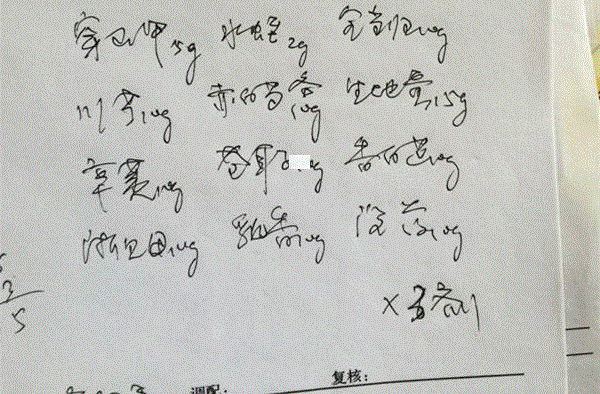 穿山甲15g 水蛭2g 全当归10g
川芎10g 赤白芍各10g 生地黄15g
辛荑10g 苍耳 10g 香白芷10g
浙贝母10g 乳香10g 没药10g
×3剂
调配： 复核：